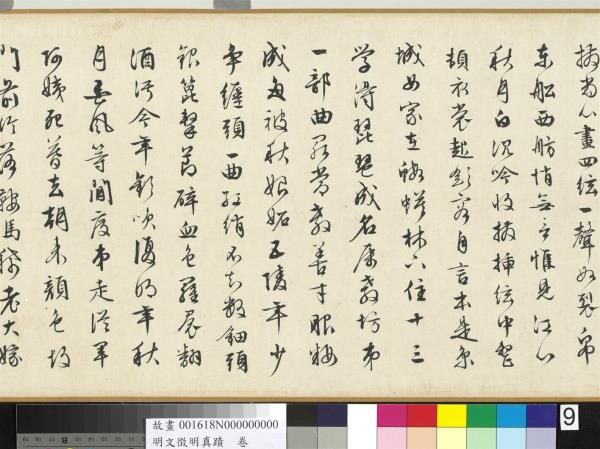 撥當心畫四絃一聲如裂帛
東船西舫悄無言惟見江心
秋月白沉吟收撥插絃中整
頓衣裳起斂容自言本是京
城女家在蝦蟆林下住十三
學得琵琶成名屬教坊第
一部曲罷常教善才服粧
成每被秋娘妬五陵年少
爭纏頭一曲紅綃不知數鈿頭
銀篦擊節碎血色羅裙翻
酒污今年歡笑復明年秋
月春風等閒度弟走從軍
阿姨死暮去朝來顏色故
門前冷落鞍馬稀老大嫁
故畫 001618N000000000
明文徵明真蹟 卷
9